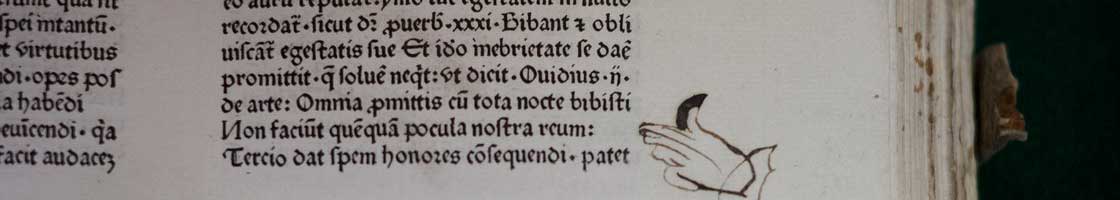 ſpei mtantū·
t virtutibus
di·opes poſ
a habēdi
euīcendi·q̄a
facit audaceꝫ
recordat̄·ſicut dr̄ ꝓuerb·xxxi·Bibant ⁊ obli
uiſcāt̄ egeſtatis ſue Et iďo inebrietate ſe daē
promittit·q̄ ſoluē neq̄t:vt dicit·Ouidius·ii·
de arte: Omnia ꝓmittis cū tota nocte bibiſti
Non faciūt quēquā pocula noſtra reum:
Tercio dat ſpem honores cōſequendi·patet